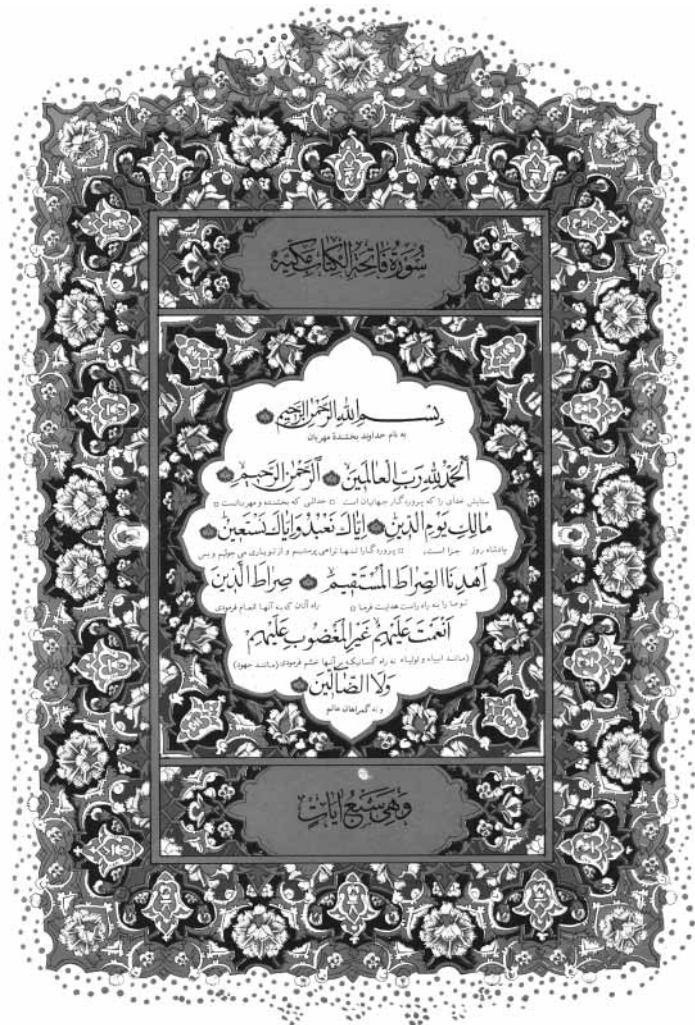 سُورَةُ فَاتِحَةِ الْكِتَابِ مَكِّيَّةٌ
بِسْمِ اللهِ الرَّحْمٰنِ الرَّحِيمِ
به نام خداوند بخشندهٔ مهربان
اَلْحَمْدُ لِلّٰهِ رَبِّ الْعَالَمِينَ اَلرَّحْمٰنِ الرَّحِيمِ
ستایش خدای را که پروردگار جهانیان است خدائی که بخشنده و مهربانست
مَالِكِ يَوْمِ الدِّينِ اِيَّاكَ نَعْبُدُ وَاِيَّاكَ نَسْتَعِينُ
پادشاه روز جزا است، پروردگارا تنها ترا می پرستیم و از تو یاری می جوئیم و بس
اِهْدِنَا الصِّرَاطَ الْمُسْتَقِيمَ صِرَاطَ الَّذِينَ
تو ما را به راه راست هدایت فرما راه آنان که به آنها انعام فرمودی
اَنْعَمْتَ عَلَيْهِمْ غَيْرِ الْمَغْضُوبِ عَلَيْهِمْ
(مانند انبیاء و اولیاء نه راه کسانیکه بر آنها خشم فرمودی (مانند جهود)
وَلَا الضَّالِّينَ
و نه گمراهان عالم
وَهِيَ سَبْعُ اٰيَاتٍ